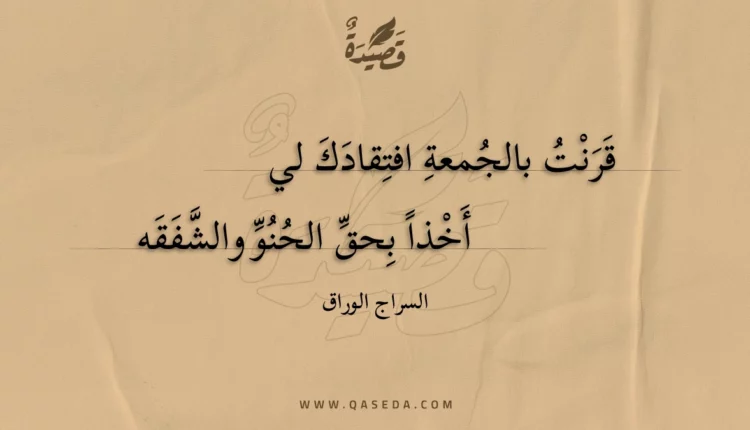 قَصِيدَةٌ
قَرَنْتُ بالجُمعةِ افتِقادَكَ لي
أَخْذاً بِحقِّ الحُنُوِّ والشَّفَقَه
السراج الوراق
WWW.QASEDA.COM